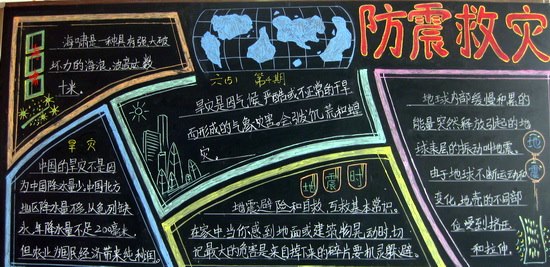 防震救灾
海啸是一种具有强大破
坏力的海浪,波高达数
十米。
六(5) 第4期
旱灾是因气候严酷或不正常的干旱
而形成的气象灾害。会引发饥荒和蝗
灾。
旱灾
中国的旱灾不是因
为中国降水量少,中国北方
地区降水量不多,从
水,年降水量不足200毫米,
但农业为国民经济带来纯利润。
地震时
地震避险和自救、互救基本常识。
在家中当你感到地面或建筑物晃动时,切
记最大的危害是来自掉下来的碎片,要机灵躲避。
地震
地球内部缓慢积累的
能量突然释放引起的地
球表层的振动叫地震。
由于地球不断运动和
变化,地壳的不同部
位受到挤压
和拉伸